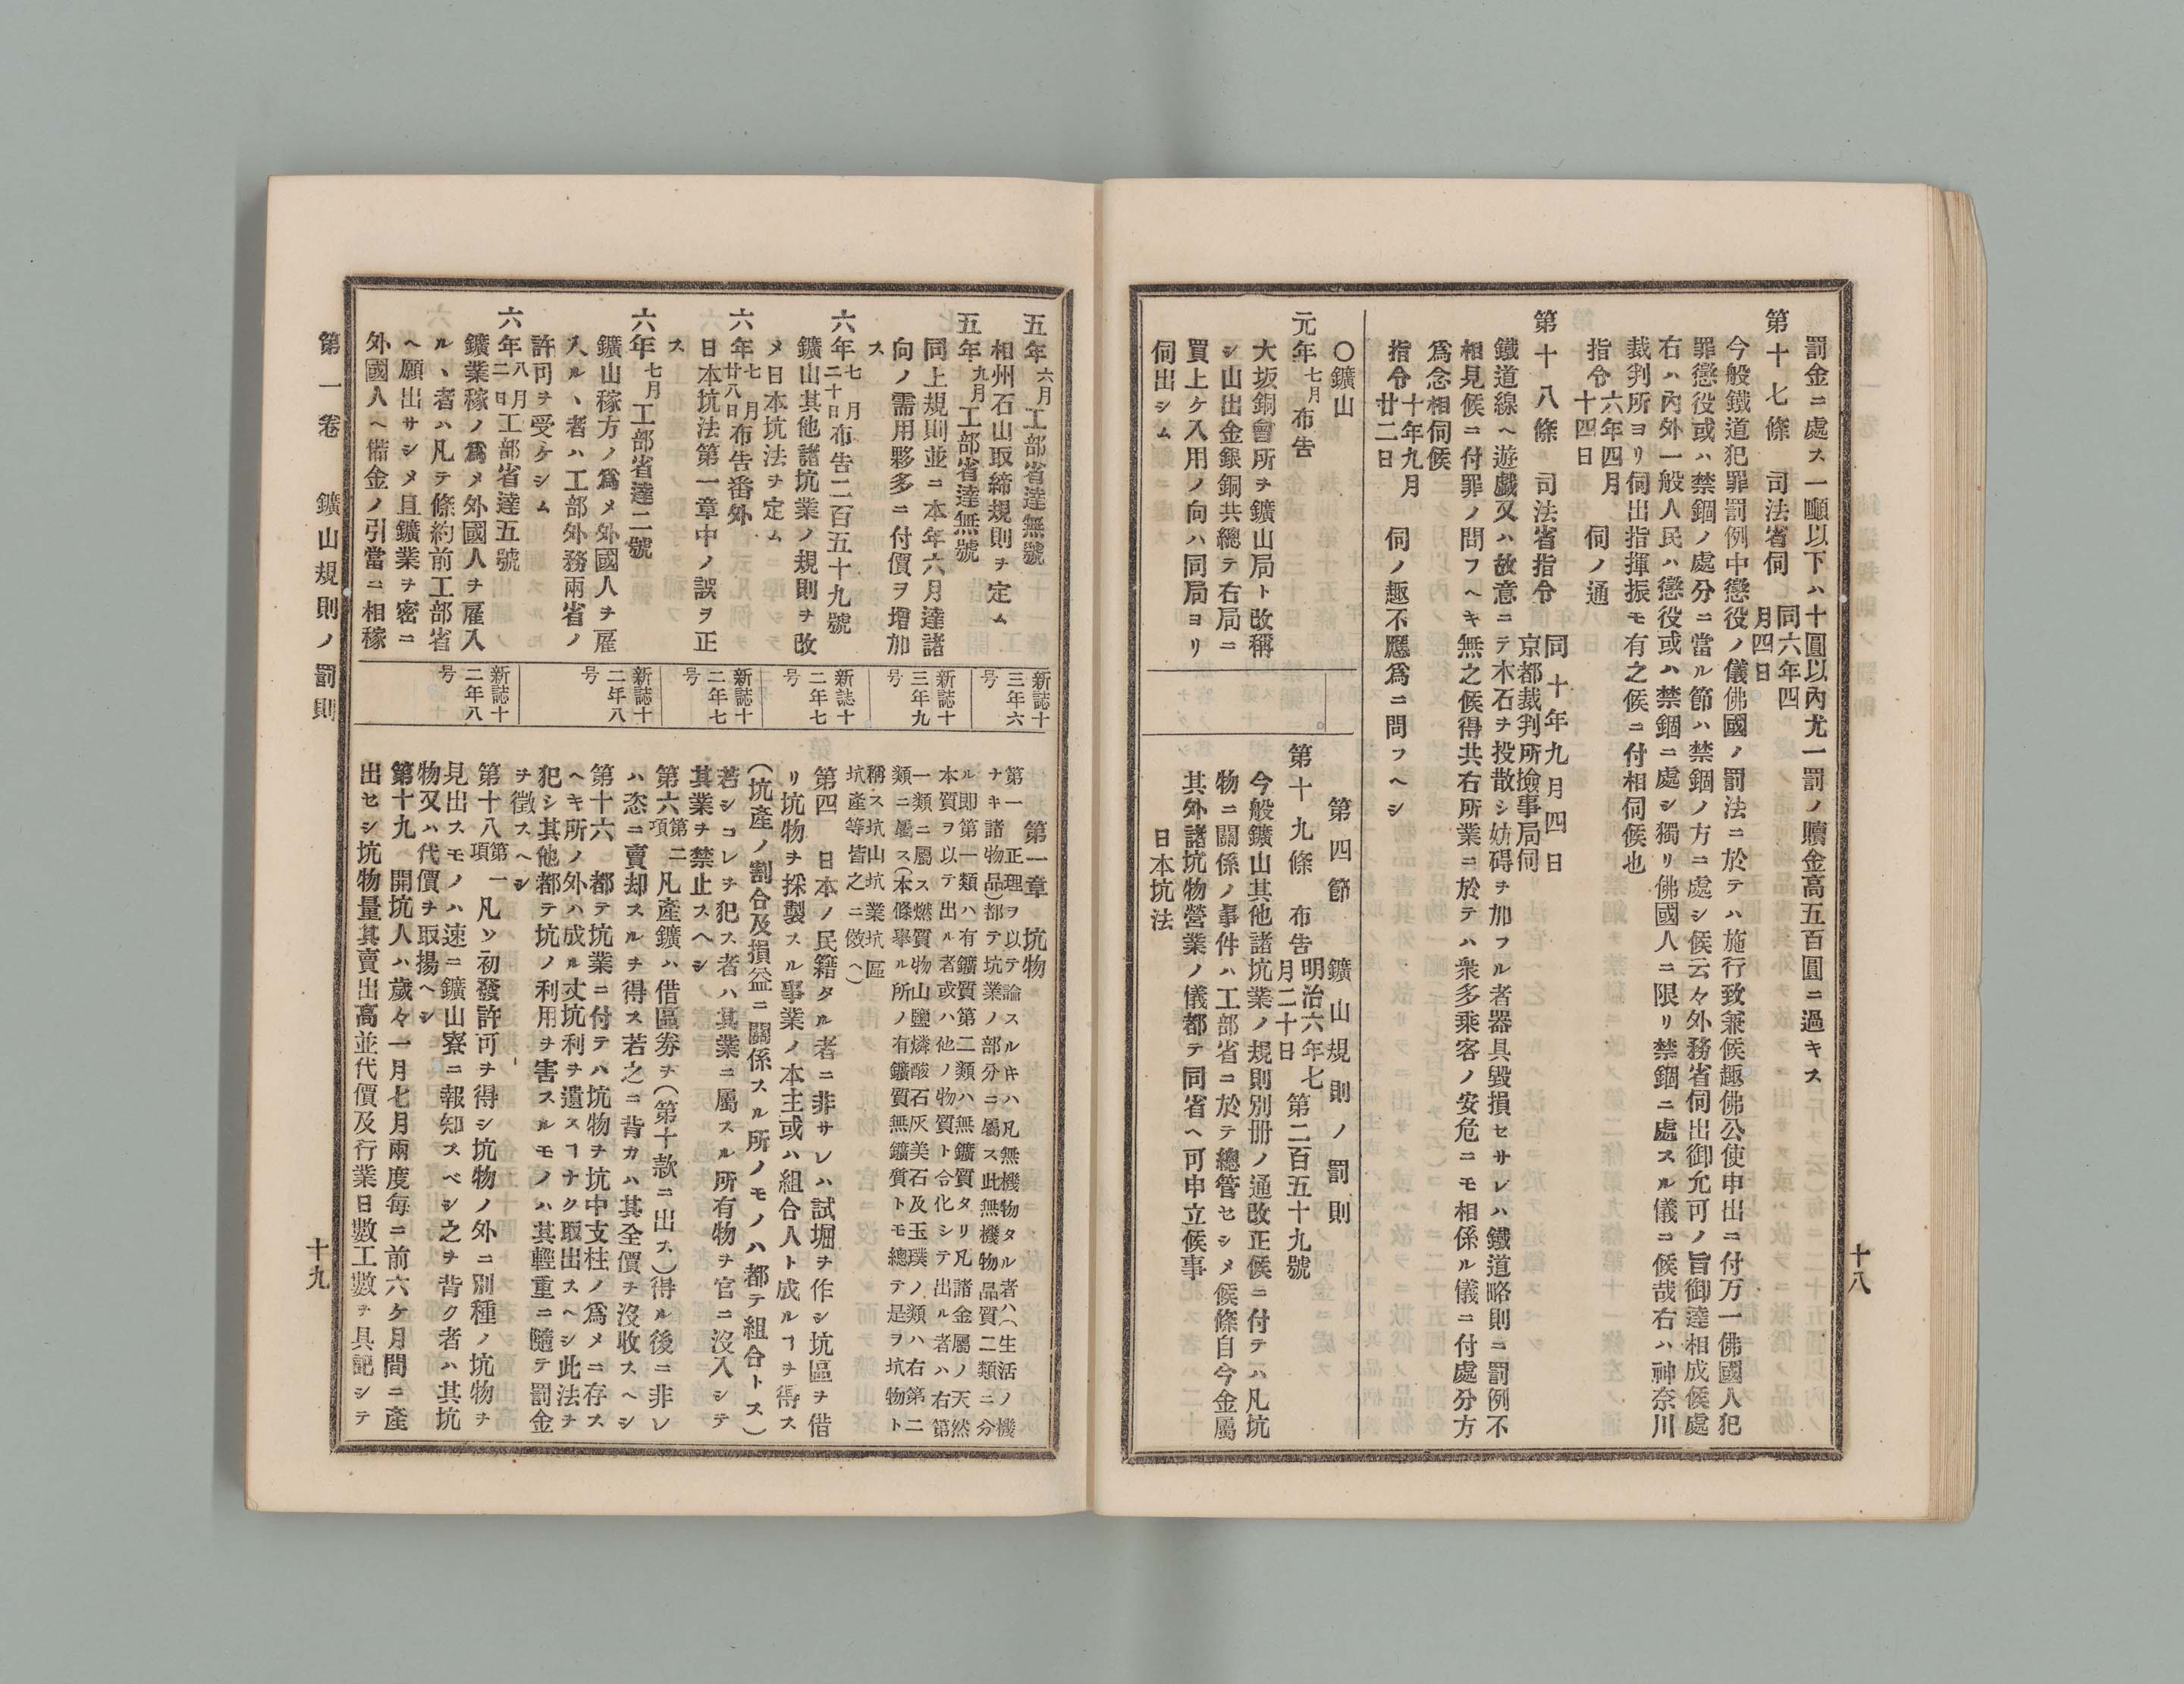 罰金ニ處ス一噸以下ハ十圓以內尤一罰ノ贖金高五百圓ニ過キス
第十七條　司法省伺　同六年四月四日
今般鐵道犯罪罰例中懲役ノ儀佛國ノ罰法ニ於テハ施行致兼候趣佛公使申出ニ付万一佛國人犯
罪懲役或ハ禁錮ノ處分ニ當ル節ハ禁錮ノ方ニ處シ候云々外務省伺出御允可ノ旨御達相成候處
右ハ內外一般人民ハ懲役或ハ禁錮ニ處シ獨リ佛國人ニ限リ禁錮ニ處スル儀ニ候哉右ハ神奈川
裁判所ヨリ伺出指揮振モ有之候ニ付相伺候也
指令六年四月十四日　伺ノ通
第十八條　司法省指令　同十年九月四日京都裁判所撿事局伺
鐵道線ヘ遊戯又ハ故意ニテ木石ヲ投散シ妨碍ヲ加フル者器具毀損セサレハ鐵道略則ニ罰例不
相見候ニ付罪ノ問フヘキ無之候得共右所業ニ於テハ衆多乘客ノ安危ニモ相係ル儀ニ付處分方
爲念相伺候
指令十年九月廿二日　伺ノ趣不應爲ニ問フヘシ
〇鑛山
元年七月布告
大坂銅會所ヲ鑛山局ト改稱
シ山出金銀銅共總テ右局ニ
買上ケ入用ノ向ハ同局ヨリ
伺出シム
第四節　鑛山規則ノ罰則
第十九條　布告明治六年七月二十日　第二百五十九號
今般鑛山其他諸坑業ノ規則別冊ノ通改正候ニ付テハ凡坑
物ニ關係ノ事件ハ工部省ニ於テ總管セシメ候條自今金屬
其外諸坑物營業ノ儀都テ同省ヘ可申立候事
日本坑法
十八
五年六月工部省達無號
相州石山取締規則ヲ定ム
五年九月工部省達無號
同上規則並ニ本年六月達諸
向ノ需用夥多ニ付價ヲ增加
ス
六年七月二十日布告二百五十九號
鑛山其他諸坑業ノ規則ヲ改
メ日本坑法ヲ定ム
六年七月廿八日布告番外
日本坑法第一章中ノ誤ヲ正
ス
六年七月工部省達二號
鑛山稼方ノ爲メ外國人ヲ雇
入ルヽ者ハ工部外務兩省ノ
許可ヲ受ケシム
六年八月二日工部省達五號
鑛業稼ノ爲メ外國人ヲ雇入
ルヽ者ハ凡テ條約前工部省
ヘ願出サシメ且鑛業ヲ密ニ
外國人ヘ備金ノ引當ニ相稼
新誌十三年六号
新誌十三年九号
新誌十二年七号
新誌十二年七号
新誌十二年八号
新誌十二年八号
第一章　坑物
第一　正理ヲ以テ論スルキハ凡無機物タル者ハ(生活ノ機
ナキ諸物品)都テ坑業ノ部分ニ屬ス此無機物品質二類ニ分
ル即第一類ハ有鑛質第二類ハ無鑛質タリ凡諸金屬ノ天然
本質ヲ以テ出ル者或ハ他ノ物質ト合化シテ出ル者ハ右第
一類ニ屬ス燃質物山鹽燐酸石灰美石及玉璞ノ類ハ右第二
類ニ屬ス(本條擧ル所ノ有鑛質無鑛質トモ總テ是ヲ坑物ト
稱ス坑山坑業坑區
坑產等皆之ニ傚ヘ)
第四　日本ノ民籍タル者ニ非サレハ試堀ヲ作シ坑區ヲ借
リ坑物ヲ採製スル事業ノ本主或ハ組合人ト成ルヿヲ得ス
(坑產ノ割合及損益ニ關係スル所ノモノハ都テ組合トス)
若シコレヲ犯ス者ハ其業ニ屬スル所有物ヲ官ニ沒入シテ
其業ヲ禁止スヘシ
第六第二項　凡產鑛ハ借區券ヲ(第十款ニ出ス)得ル後ニ非レ
ハ恣ニ賣却スルヲ得ス若之ニ背カハ其全價ヲ沒收スヘシ
第十六　都テ坑業ニ付テハ坑物ヲ坑中支柱ノ爲メニ存ス
ヘキ所ノ外ハ成ル丈坑利ヲ遺スヿナク取出スヘシ此法ヲ
犯シ其他都テ坑ノ利用ヲ害スルモノハ其輕重ニ隨テ罰金
ヲ徵スヘシ
第十八第一項　凡ソ初發許可ヲ得シ坑物ノ外ニ別種ノ坑物ヲ
見出スモノハ速ニ鑛山寮ニ報知スベシ之ヲ背ク者ハ其坑
物又ハ代價ヲ取揚ヘシ
第十九　開坑人ハ歲々一月七月兩度每ニ前六ケ月間ニ產
出セシ坑物量其賣出高並代價及行業日數工數ヲ具記シテ
第一卷　鑛山規則ノ罰則
十九